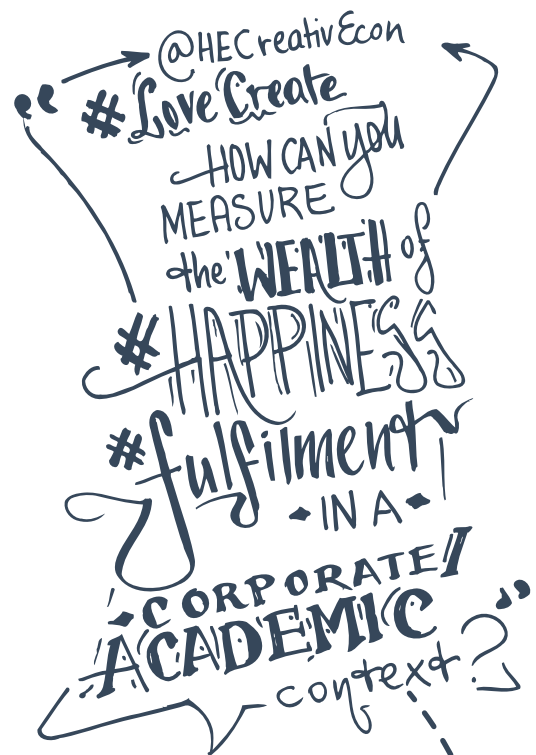 @HECreativEcon
“ #Love Create
HOW CAN you
MEASURE
the WEALTH of
#HAPPINESS
#fulfilment
IN A
CORPORATE/
ACADEMIC
context? ”